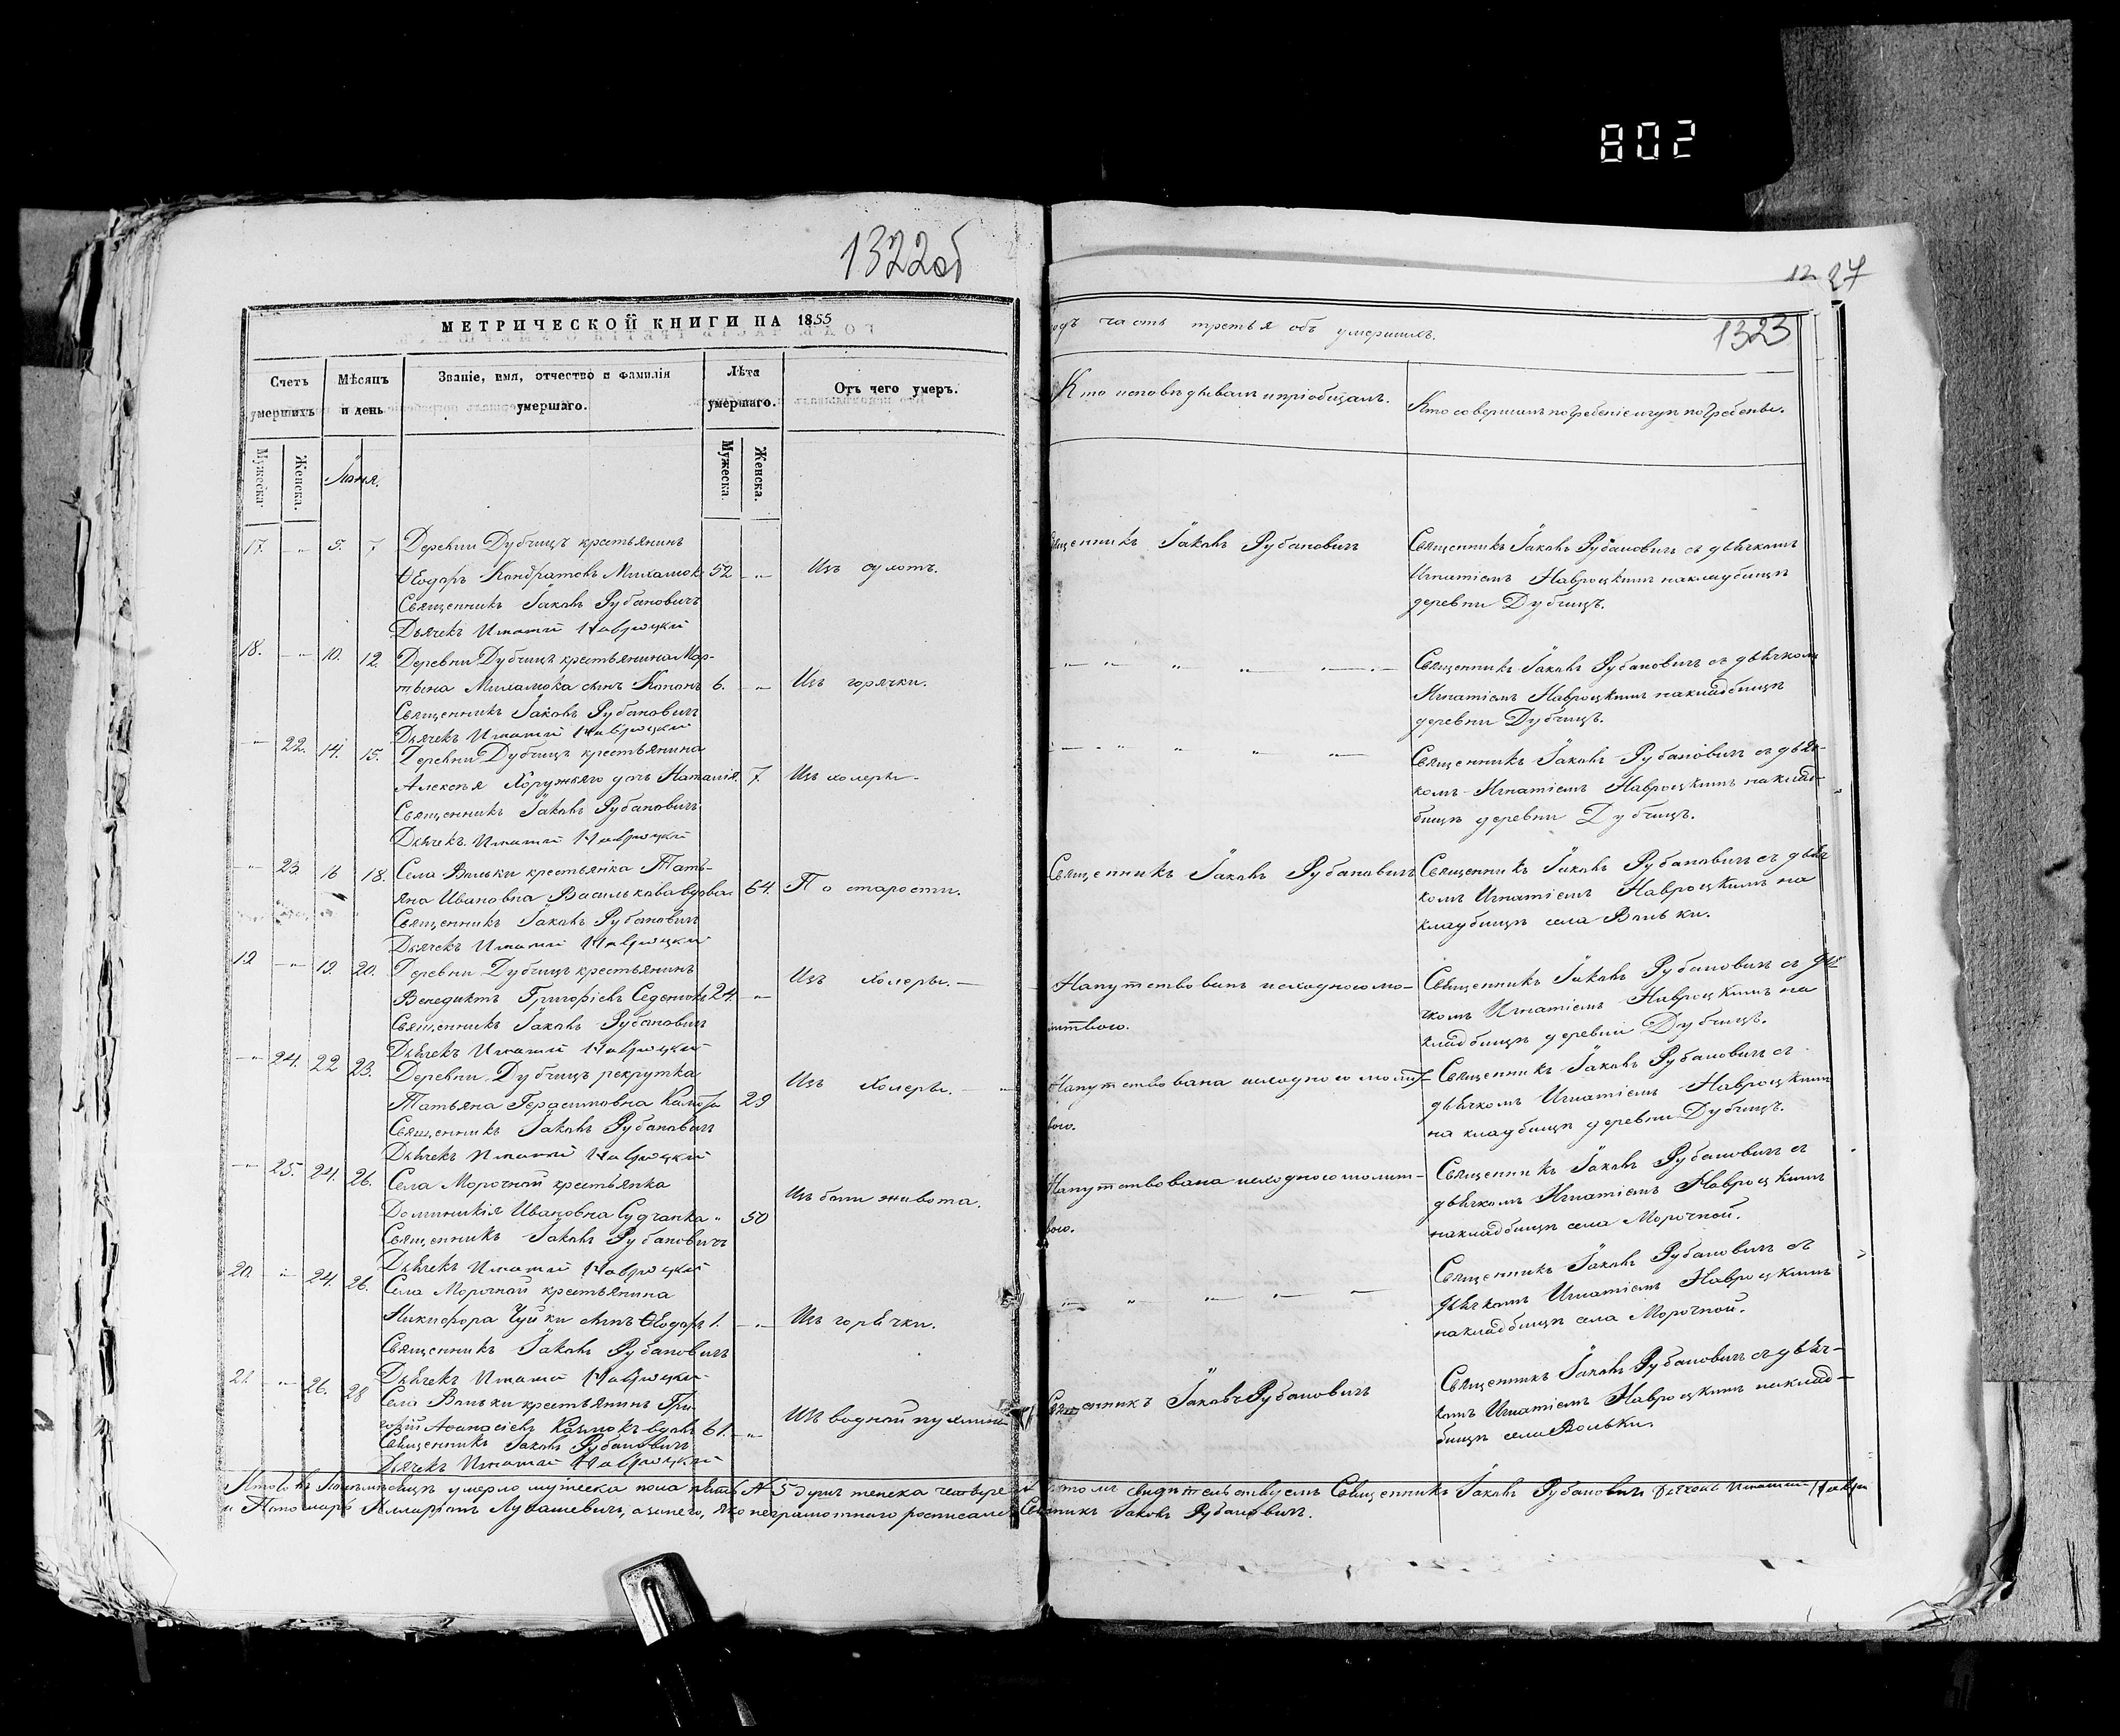 802
1322об
МЕТРИЧЕСКОЙ КНИГИ НА 1855
Счетъ умершихъ
Мѣсяцъ и день
Званіе, имя, отчество и фамилія умершаго.
Лѣта умершаго.
Отъ чего умеръ.
Мужеска.
Женска.
Мужеска.
Женска.
17. - 5. 7 Деревни Дубчицъ крестьянинъ
Ѳеодоръ Кондратовъ 52 - Изъ сухотъ.
Священникъ Іаковъ Рубановичъ
Дьячекъ Игнатій Навроцкій
18. - 10. 12. Деревни Дубчицъ крестьянина Мар-
тына сынъ 6. - Изъ горячки.
Священникъ Іаковъ Рубановичъ
Дьячекъ Игнатій Навроцкій
- 22. 14. 15. Деревни Дубчицъ крестьянина
Алексѣя Хоружаго дочь Наталія. 7. Изъ холеры.
Священникъ Іаковъ Рубановичъ
Дьячекъ Игнатій Навроцкій
- 23 16 18. Села Вольки крестьянка Тать-
яна Ивановна Василькова вдова 64. По старости.
Священникъ Іаковъ Рубановичъ
Дьячекъ Игнатій Навроцкій
19 - 19. 20. Деревни Дубчицъ крестьянинъ
Венедиктъ Григоріевъ 24. - Изъ холеры.
Священникъ Іаковъ Рубановичъ
Дьячекъ Игнатій Навроцкій
- 24. 22 23. Деревни Дубчицъ рекрутка
Татьяна Герасимовна 29 Изъ Холеры.
Священникъ Іаковъ Рубановичъ
Дьячекъ Игнатій Навроцкій
- 25. 24. 26. Села Морочной крестьянка
Доминикія Ивановна Судчанка 50 Изъ боли живота.
Священникъ Іаковъ Рубановичъ
Дьячекъ Игнатій Навроцкій
20. - 24. 26. Села Морочной крестьянина
Никифора Чуйки сынъ Ѳеодоръ 1. - Изъ горячки.
Священникъ Іаковъ Рубановичъ
Дьячекъ Игнатій Навроцкій
21. - 26. 28 Села Вольки крестьянинъ Гри-
горій Аѳанасіевъ 61. - Изъ водной пухлины
Священникъ Іаковъ Рубановичъ
Дьячекъ Игнатій Навроцкій
умерло мужеска пола пять № 5 душъ женска четыре
и Пономарь Лукашевичъ, а за него, яко неграмотнаго росписался
12 27
1323
годъ часть третья объ умершихъ.
Кто исповѣдывалъ и пріобщалъ.
Кто совершалъ погребеніе и гдѣ погребены.
Священникъ Іаковъ Рубановичъ
Священникъ Іаковъ Рубановичъ съ дьячкомъ
Игнатіемъ Навроцкимъ на кладбищѣ
деревни Дубчицъ.
Священникъ Іаковъ Рубановичъ съ дьячкомъ
Игнатіемъ Навроцкимъ на кладбищѣ
деревни Дубчицъ.
Священникъ Іаковъ Рубановичъ съ дьяч-
комъ Игнатіемъ Навроцкимъ на клад-
бищѣ деревни Дубчицъ.
Священникъ Іаковъ Рубановичъ
Священникъ Іаковъ Рубановичъ съ дьяч
комъ Игнатіемъ Навроцкимъ на
кладбищѣ села Вольки.
Напутствованъ исходною мо-
литвою.
Священникъ Іаковъ Рубановичъ съ дья
чкомъ Игнатіемъ Навроцкимъ на
кладбищѣ деревни Дубчицъ.
Напутствована исходною молит-
вою.
Священникъ Іаковъ Рубановичъ съ
дьячкомъ Игнатіемъ Навроцкимъ
на кладбищѣ деревни Дубчицъ.
Напутствована исходною молит-
вою.
Священникъ Іаковъ Рубановичъ съ
дьячкомъ Игнатіемъ Навроцкимъ
на кладбищѣ села Морочной.
Священникъ Іаковъ Рубановичъ съ
дьячкомъ Игнатіемъ Навроцкимъ
на кладбищѣ села Морочной.
Священникъ Іаковъ Рубановичъ
Священникъ Іаковъ Рубановичъ съ дьяч-
комъ Игнатіемъ Навроцкимъ на клад-
бищѣ села Вольки.
томъ свидѣтельствуемъ Священникъ Іаковъ Рубановичъ Дьячекъ Игнатій
Іаковъ Рубановичъ.